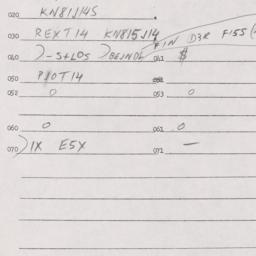 020 KN81J14S
030 REXT14 KN815J14 FIN D3R F155(
040 )-S+LOS )BEINDL 041 $
050 PIOT14 051
052 0 053 0
060 0 061 0
070 )1X E5X 071 —